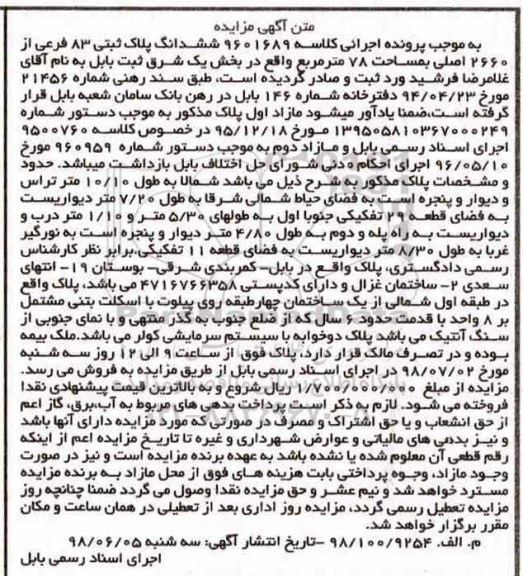 متن آگهی مزایده
به موجب پرونده اجرائی کلاسه ۹۶۰۱۶۸۹ ششدانگ پلاک ثبتی ۸۳ فرعی از
۲۶۶۰ اصلی بمساحت ۷۸ مترمربع واقع در بخش یک شرق ثبت بابل به نام آقای
غلامرضا فرشید ورد ثبت و صادر گردیده است، طبق سند رهنی شماره ۲۱۴۵۶
مورخ ۹۴/۰۴/۲۳ دفترخانه شماره ۱۴۶ بابل در رهن بانک سامان شعبه بابل قرار
گرفته است،ضمنا یادآور میشود مازاد اول پلاک مذکور به موجب دستور شماره
۱۳۹۵۰۵۸۱۰۳۶۷۰۰۰۲۴۹ مـورخ ۹۵/۱۲/۱۸ در خصوص کلاسه ۹۵۰۰۷۶۰
اجرای اسناد رسمی بابل و مـازاد دوم به موجب دستور شماره ۹۶۰۹۵۹ مورخ
۹۶/۰۵/۱۰ اجرای احکام مدنی شورای حل اختلاف بابل بازداشت میباشد. حدود
و مشخصات پلاک مذکور به شرح ذیل می باشد شمالا به طول ۱۰/۱۰ متر تراس
و دیوار و پنجره است به فضای حیاط شمالی شرقا به طول ۷/۲۰ متر دیواریست
به فضای قطعـه ۲۹ تفکیکی جنوبا اول بـه طولهای ۵/۳۰ متـر و ۱/۱۰ متر درب و
دیواریست بـه راه پله و دوم بـه طول ۴/۸۰ متـر دیوار و پنجره است به نورگیر
غربا به طول ۸/۳۰ متر دیواریست به فضای قطعه ۱۱ تفکیکی.برابر نظر کارشناس
رسمی دادگستری، پلاک واقع در بابل- کمربندی شرقی- بوستان ۱۹- انتهای
سعدی ۲- ساختمان غزال و دارای کدپستی ۴۷۱۶۷۶۶۳۵۸ می باشد، پلاک واقع
در طبقه اول شمالی از یک ساختمان چهارطبقه روی پیلوت با اسکلت بتنی مشتمل
بر ۸ واحد با قدمت حدود ۶ سال که از ضلع جنوب به گذر منتهی و با نمای جنوبی از
سنگ آنتیک می باشد پلاک دوخوابه با سیستم سرمایشی کولر می باشد.ملک بیمه
بوده و در تصرف مالک قرار دارد، پلاک فوق از ساعت ۹ الی ۱۲ روز سه شنبه
مورخ ۹۸/۰۷/۰۲ در اجرای اسناد رسمی بابل از طریق مزایده به فروش می رسد.
مزایده از مبلغ ۱/۷۰۰/۰۰۰/۰۰۰ ریال شروع و به بالاترین قیمت پیشنهادی نقدا
فروخته می شود. لازم به ذکر است پرداخت بدهی های مربوط به آب،برق، گاز اعم
از حق انشعاب و یا حق اشتراک و مصرف در صورتی که مورد مزایده دارای آنها باشد
و نیـز بدهی های مالیاتی و عوارض شهرداری و غیره تا تاریخ مزایده اعم از اینکه
رقم قطعی آن معلوم شده یا نشده باشد به عهده برنده مزایده است و نیز در صورت
وجود مازاد، وجوه پرداختی بابت هزینه های فوق از محل مازاد بـه برنده مزایده
مسترد خواهد شد و نیم عشر و حق مزایده نقدا وصول می گردد ضمنا چنانچه روز
مزایده تعطیل رسمی گردد، مزایده روز اداری بعد از تعطیلی در همان ساعت و مکان
مقرر برگزار خواهد شد.
م. الف. ۹۸/۱۰۰/۹۲۵۴ -تاریخ انتشار آگهی: سه شنبه ۹۸/۰۶/۰۵
اجرای اسناد رسمی بابل